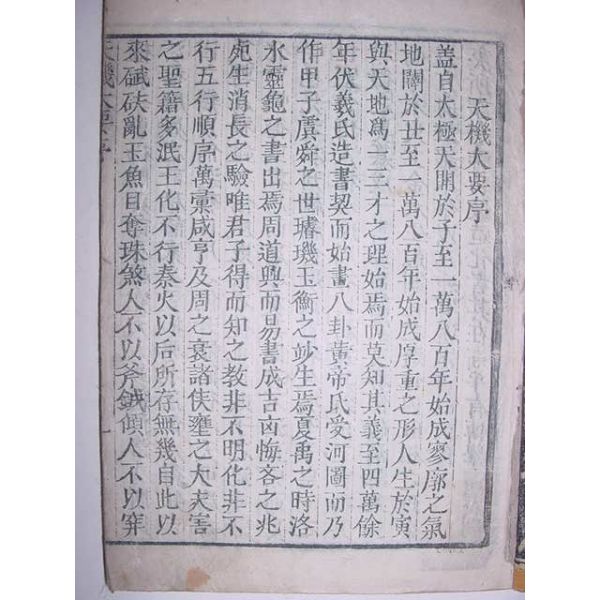 天機大要序
蓋自太極天開於子至一萬八百年始成寥廓之氣
地闢於丑至一萬八百年始成厚重之形人生於寅
與天地爲一三才之理始焉而莫知其義至四萬餘
年伏羲氏造書契而始畫八卦黃帝氏受河圖而乃
作甲子虞舜之世璿璣玉衡之妙生焉夏禹之時洛
水靈龜之書出焉周道興而易書成吉凶悔吝之兆
死生消長之驗唯君子得而知之教非不明化非不
行五行順序萬彙咸亨及周之衰諸侯壅之大夫害
之聖籍多泯王化不行秦火以后所存無幾自此以
來碔砆亂玉魚目奪珠煞人不以斧鉞傾人不以穽
天機大要序
一